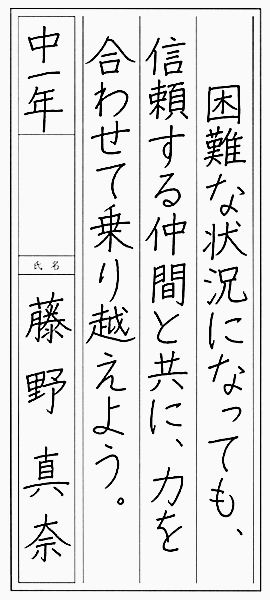 困難な状況になっても、
信頼する仲間と共に、力を
合わせて乗り越えよう。
中一年
氏名
藤野真奈